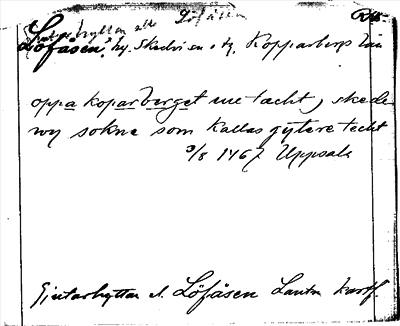 Gjutarhyttan el. Löfåsen
Löfåsen, hy. Skedvi sn o tg, Kopparbergs län
oppa koparberget me tacht, skede
wy sokne som kallas gytere techt
3/8 1467 Uppsala
Gjutarhyttan el. Löfåsen Lantm kart.